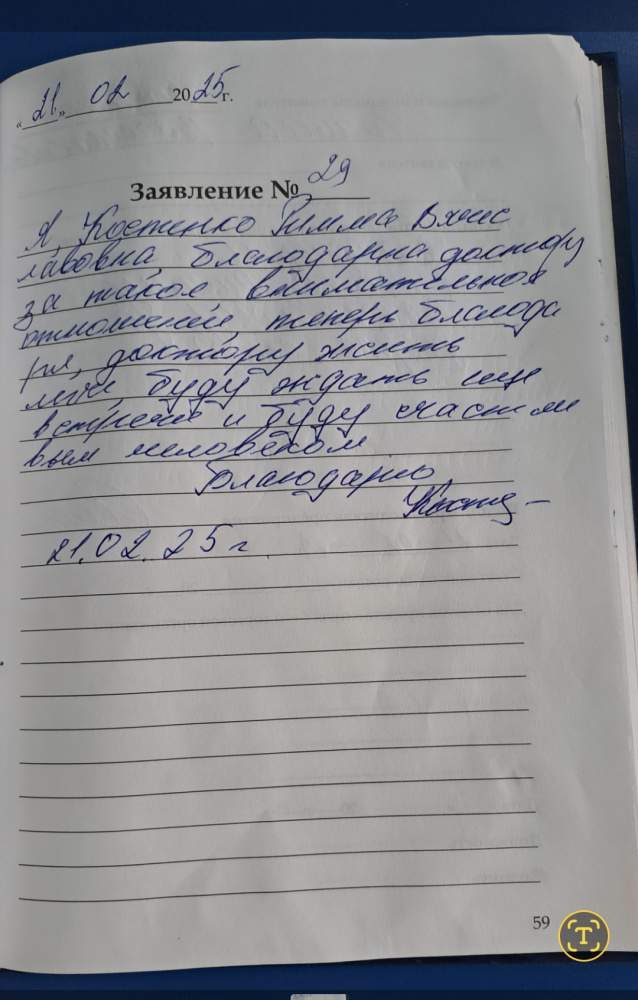 «21.» 02 2025г.
Заявление № 29
Я, Костенко Римма
лавовна, благодарна доктору
за такое внимательное
отношение, теперь благода
ря, доктору жить
легче, буду ждать еще
встречи и буду счастли
вым человеком
Благодарю
21.02.25 г.
59